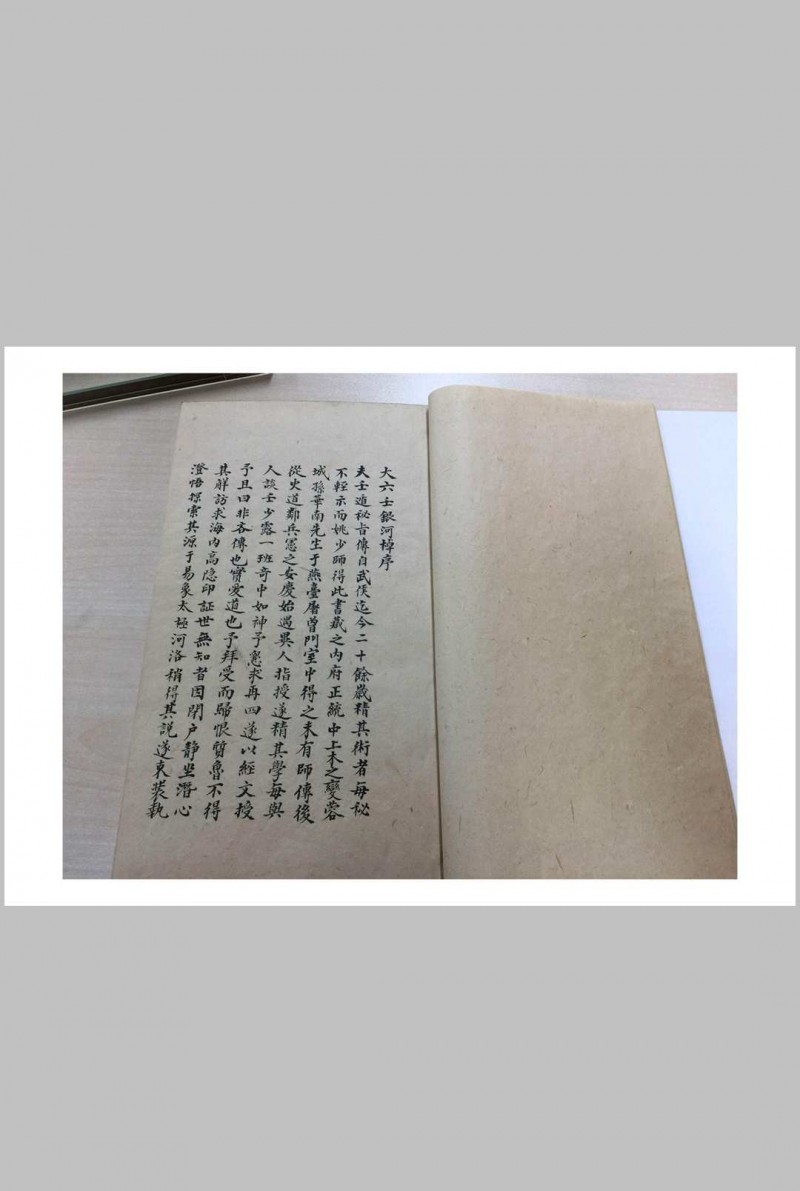 大六壬銀河棹序
夫壬遁秘旨傳自武侯迄今二十餘歲精其術者每秘
不輕示而姚少師得此書藏之內府正統中土木之變蓉
城孫華南先生于燕臺屠曾門室中得之未有師傳後
從史道鄰兵憲之安慶始遇異人指授遂精其學每與
人談壬少露一班奇中如神予懇求再四遂以經文授
予且曰非吝傳也寳愛道也予拜受而歸恨質魯不得
其觧訪求海内高隐印証世無知者因閉户靜坐潛心
澄悟探索其源于易象太極河洛稍得其説遂束裝執